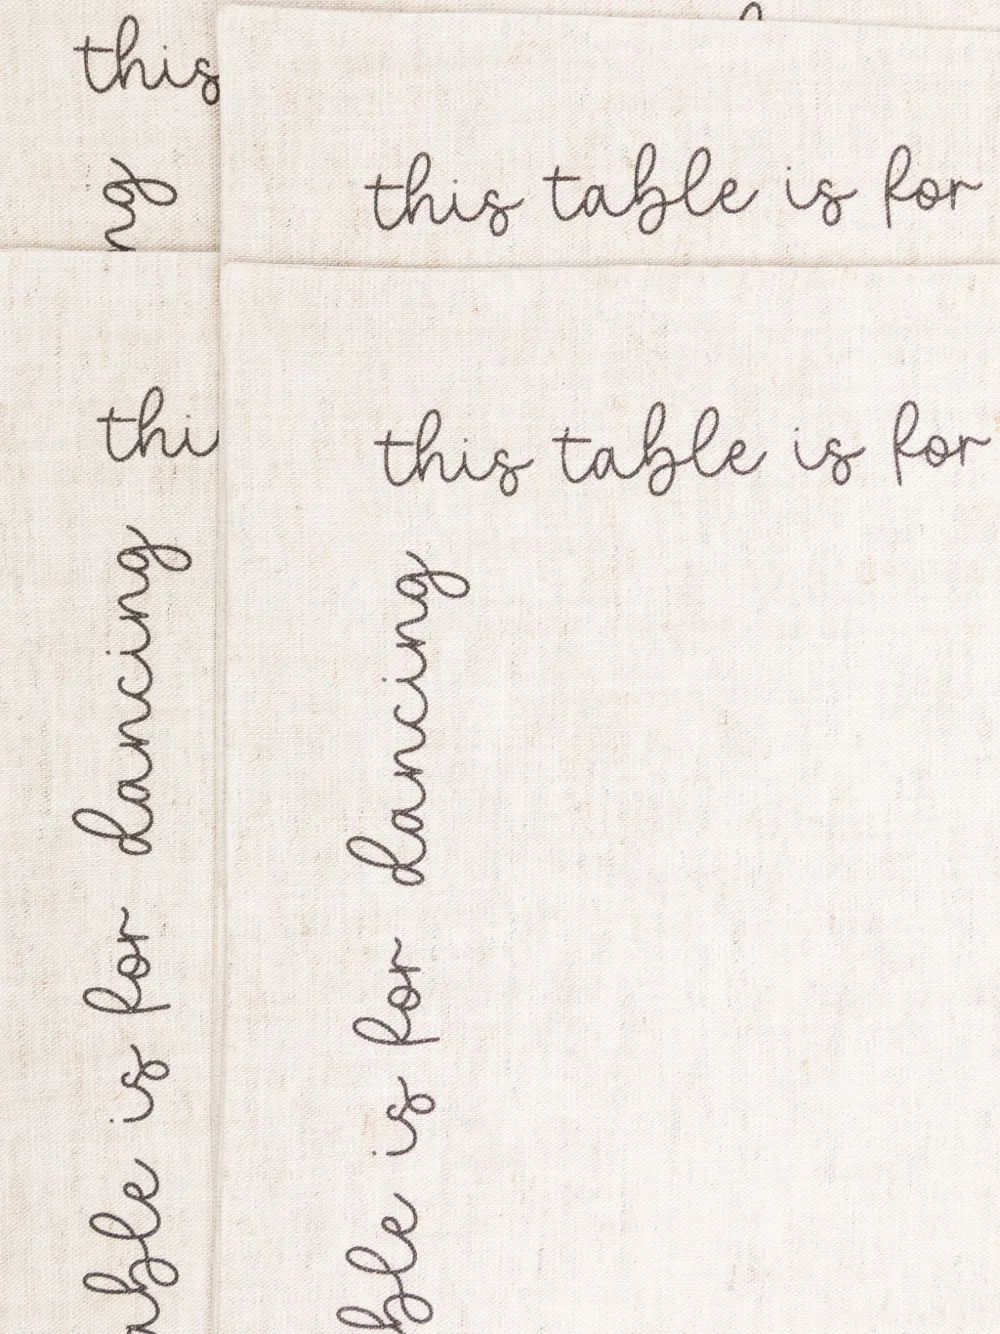 this
ng
this table is for
thi
this table is for
able is for dancing
ble is for dancing